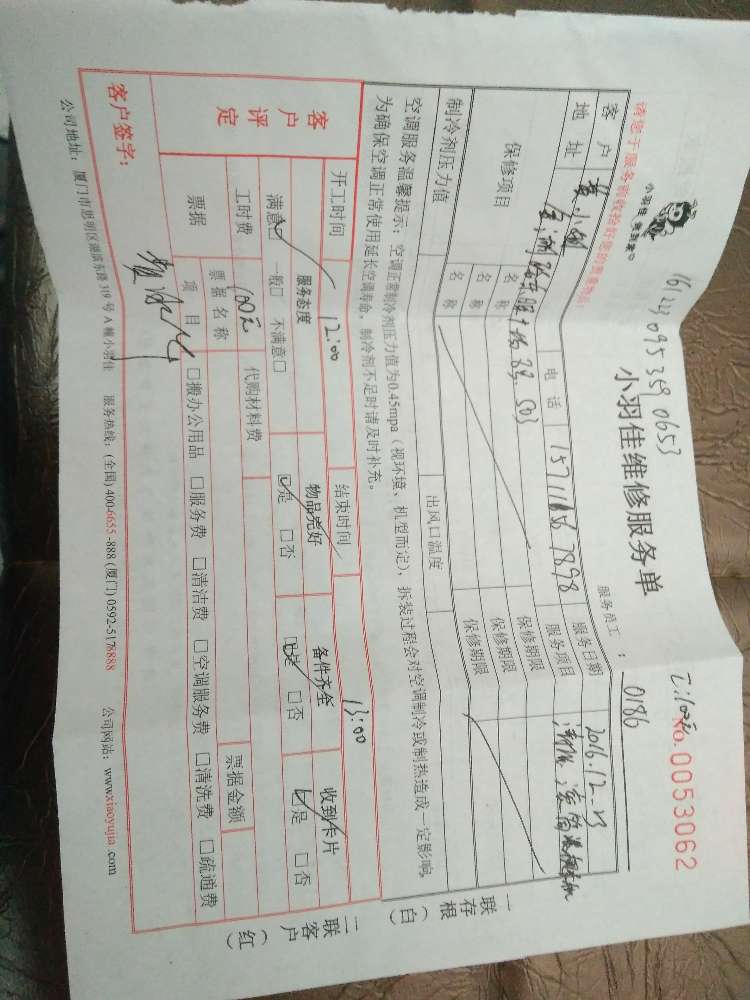 161223095359 0653
小羽佳 贵到家
小羽佳维修服务单
No.0053062
请您于服务前收拾好您的贵重物品！
服务员工：0186
客户 电话 服务日期 2016.12.23
地址 服务项目
保修项目 名称 保修期限
名称 保修期限
名称 保修期限
制冷剂压力值 出风口温度
空调服务温馨提示：空调正常制冷剂压力值为0.45mpa（视环境、机型而定），拆装过程会对空调制冷或制热造成一定影响，
为确保空调正常使用延长空调寿命，制冷剂不足时请及时补充。
开工时间 12:00 结束时间 13:00
客户评定 服务态度 物品完好 备件齐全 收到卡片
满意□ 一般□ 不满意□ □是 □否 □是 □否 □是 □否
工时费 100元 代购材料费
票据 票据名称 票据金额
项目 □搬办公用品 □服务费 □清洁费 □空调服务费 □清洗费 □疏通费
客户签字：
公司地址：厦门市思明区湖滨东路319号A幢小羽佳 服务热线：(全国) 400-6655-888 (厦门) 0592-5178888 公司网站：www.xiaoyujia.com
一联存根（白）
二联客户（红）